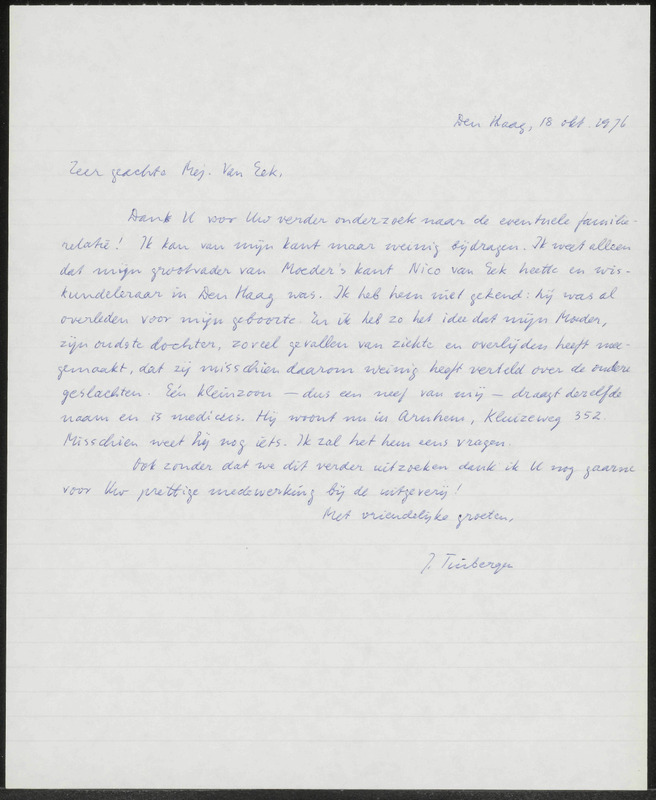 Den Haag, 18 okt. 1976
Zeer geachte Mej. Van Eek,
Dank U voor Uw verder onderzoek naar de eventuele familie-
relatie! Ik kan van mijn kant maar weinig bijdragen. Ik weet alleen
dat mijn grootvader van Moeder's kant Nico van Eek heette en wis-
kundeleraar in Den Haag was. Ik heb hem niet gekend: hij was al
overleden voor mijn geboorte. En ik heb zo het idee dat mijn Moeder,
zijn oudste dochter, zoveel gevallen van ziekte en overlijden heeft mee-
gemaakt, dat zij misschien daarom weinig heeft verteld over de oudere
geslachten. Eén kleinzoon — dus een neef van mij — draagt dezelfde
naam en is medicus. Hij woont nu in Arnhem, Kluizeweg 352.
Misschien weet hij nog iets. Ik zal het hem eens vragen.
Ook zonder dat we dit verder uitzoeken dank ik U nog gaarne
voor Uw prettige medewerking bij de uitgeverij!
Met vriendelijke groeten,
J. Tinbergen